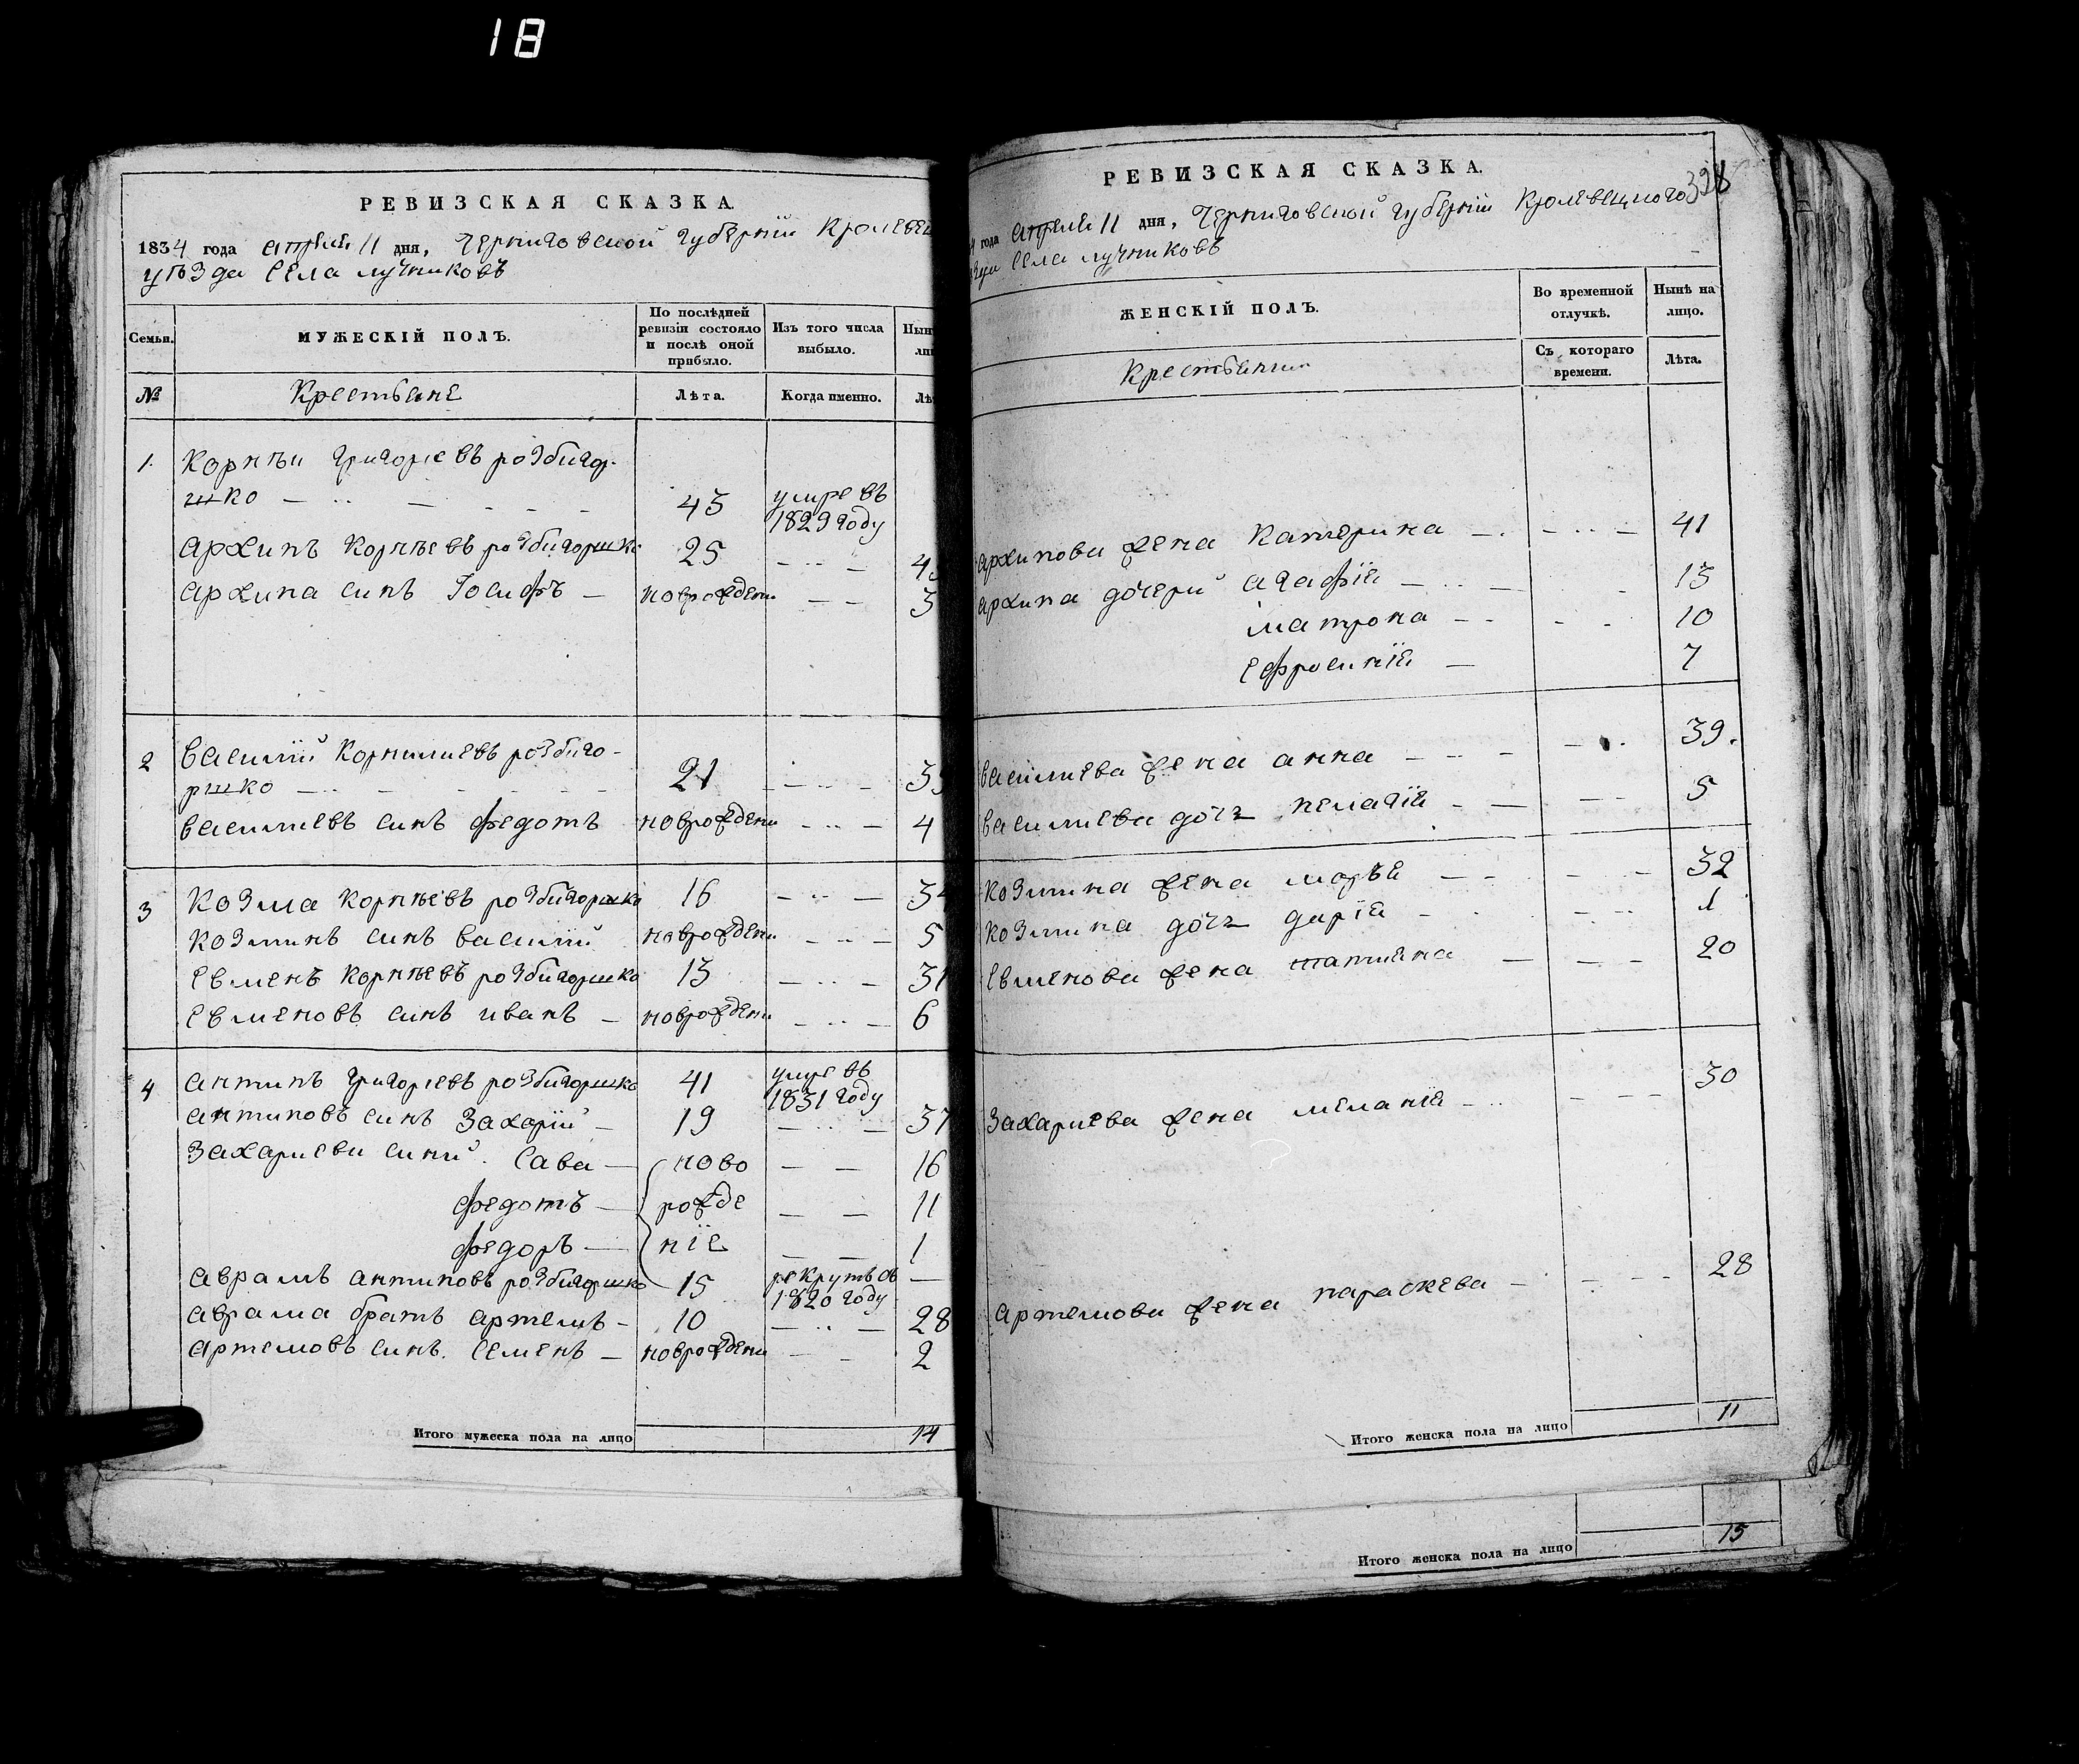 18
РЕВИЗСКАЯ СКАЗКА.
1834 года апреля 11 дня, Черниговской губернии Кролевец
уѣзда села лучниковъ
Семьи.
МУЖЕСКІЙ ПОЛЪ.
По послѣдней
ревизіи состояло
и послѣ оной
прибыло.
Изъ того числа
выбыло.
Нын
ли
№
Крестьяне
Лѣта.
Когда именно.
Лѣ
1.
Корнѣи григориевъ розбигор-
шко
43
умре въ
1829 году
архипъ корнѣевъ розбигоршко
25
4
архипа синъ Іосифъ
новрождени
3
2
василий корнилиевъ розбиго-
ршко
21
39
василиевъ синъ федотъ
новрождени
4
3
козма корнѣевъ розбигоршко
16
34
козминъ синъ василий
новрождени
5
евменъ корнѣевъ розбигоршко
13
31
евменовъ синъ иванъ
новрождени
6
4
антипъ григориевъ розбигоршко
41
умре въ
1831 году
антиповъ синъ Захарий
19
37
Захариеви сини Сава
ново
16
федотъ
рожде
11
федоръ
ніе
1
аврамъ антиповъ розбигоршко
15
рекрутъ въ
1820 году
аврама братъ артемъ
10
28
артемовъ синъ семенъ
новрождени
2
Итого мужеска пола на лицо
14
РЕВИЗСКАЯ СКАЗКА.
398
года апреля 11 дня, Черниговской губернии Кролевецкого
села лучниковъ
ЖЕНСКІЙ ПОЛЪ.
Во временной
отлучкѣ.
Нынѣ на
лицо.
Крестьянки
Съ котораго
времени.
Лѣта.
архипова жена катерина
41
архипа дочери агафія
13
матрона
10
ефросинія
7
василиева жена анна
39.
василиева дочъ пелагія
5
козмина жена маръя
32
козмина дочъ дарія
1
евменова жена татияна
20
Захариева жена меланія
30
артемова жена параскева
28
Итого женска пола на лицо
11
Итого женска пола на лицо
15